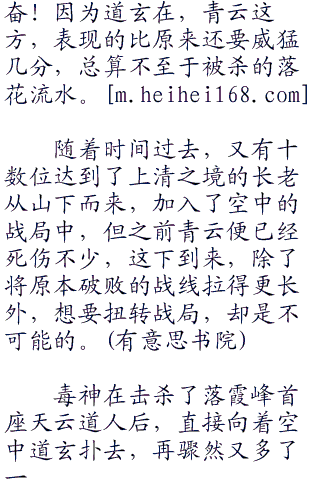 奋！因为道玄在，青云这
方，表现的比原来还要威猛
几分，总算不至于被杀的落
花流水。[m.heihei168.com]
随着时间过去，又有十
数位达到了上清之境的长老
从山下而来，加入了空中的
战局中，但之前青云便已经
死伤不少，这下到来，除了
将原本破败的战线拉得更长
外，想要扭转战局，却是不
可能的。(有意思书院)
毒神在击杀了落霞峰首
座天云道人后，直接向着空
中道玄扑去，再骤然又多了
一